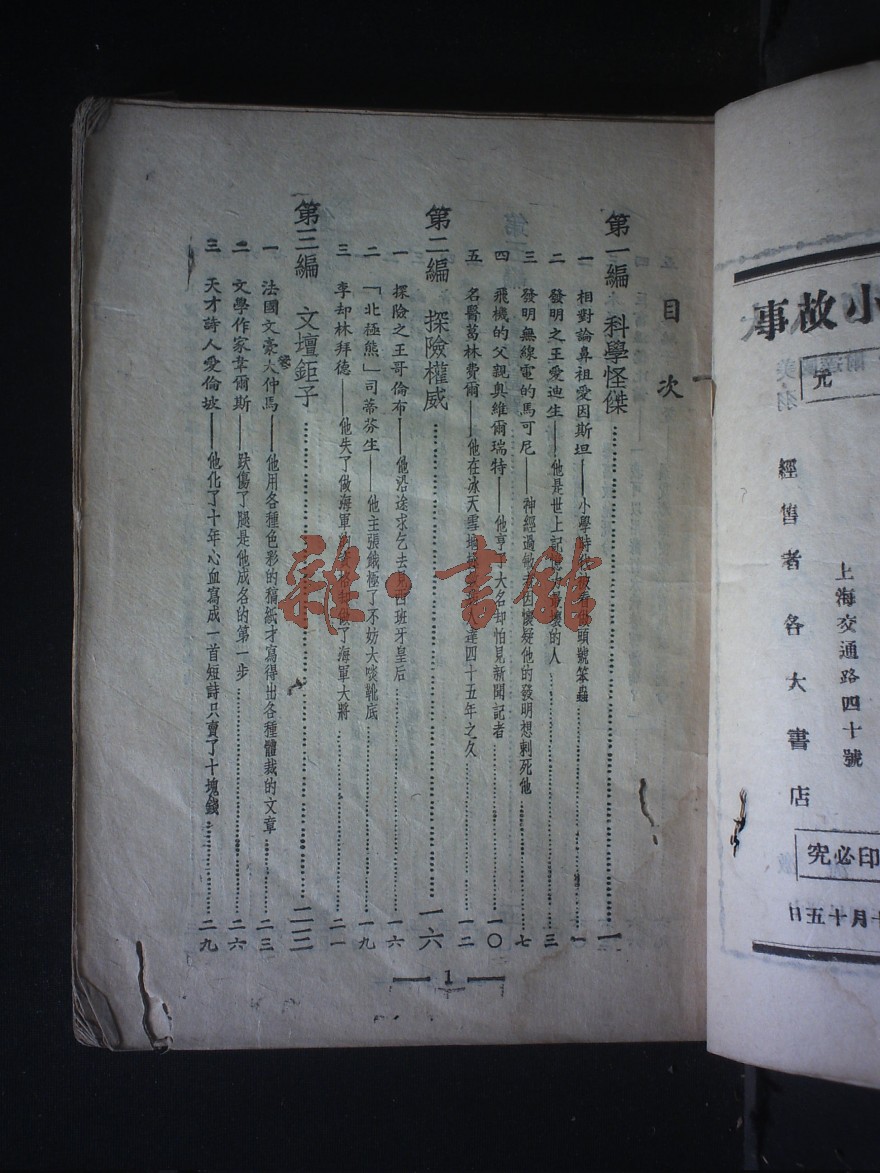 目次
第一編 科學怪傑……一
一 相對論鼻祖愛因斯坦——小學時代被看做頭號笨蟲……一
二 發明之王愛迪生——他是世上記憶力最壞的人……三
三 發明無線電的馬可尼——神經過敏者因懷疑他的發明想刺死他……七
四 飛機的父親奧維爾瑞特——他享了大名却怕見新聞記者……一〇
五 名醫葛林費爾——他在冰天雪地 達四十五年之久……一二
第二編 探險權威……一六
一 探險之王哥倫布——他沿途求乞去見西班牙皇后……一六
二 「北極熊」司蒂芬生——他主張餓極了不妨大啖靴底……一九
三 李却林拜德——他失了做海軍 做了海軍大將……二一
第三編 文壇鉅子……二三
一 法國文豪大仲馬——他用各種色彩的稿紙才寫得出各種體裁的文章……二三
二 文學作家韋爾斯——跌傷了腿是他成名的第一步……二六
三 天才詩人愛倫坡——他化了十年心血寫成一首短詩只賣了十塊錢……二九
1
雜·書館
小故事
元
上海交通路四十號
經售者各大書店
印必究
十月十五日